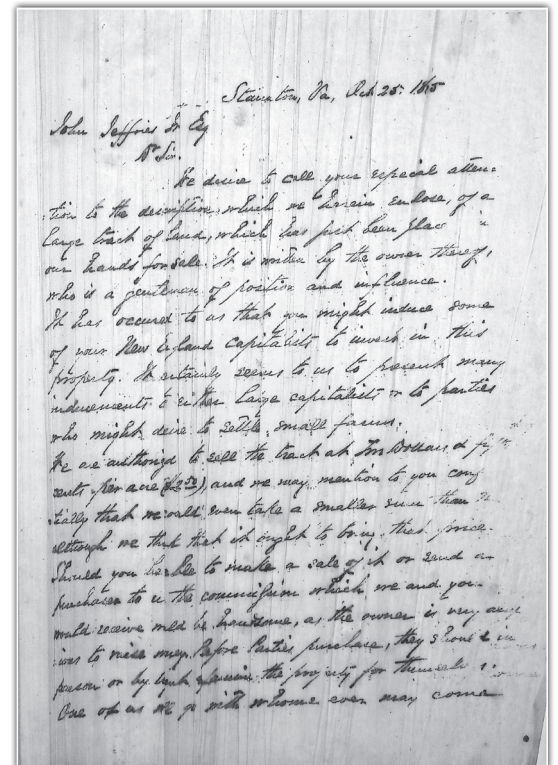 Staunton, Va, Oct 25 1865
John Jeffries Jr Esq
Dr Sir.
We desire to call your especial atten-
tion to the description, which we herein enclose, of a
large track of land, which has just been plac
our hands for sale. It is written by the owner thereof,
who is a gentleman of position and influence.
It has occured to us that you might induce some
of your New England capitalists to invest in this
property. It certainly seems to us to present many
inducements to either large capitalists or to parties
who might desire to settle small farms.
We are authorized to sell the track at Two Dollars & fifty
cents per acre ($2.50), and we may mention to you conf
tially that we could even take a smaller sum than
although we think that it ought to bring that price.
Should you be able to make a sale of it or send a
purchaser to us the commission which we and you
would receive would be handsome, as the owner is very anx
ious to raise money. Before Parties purchase, they should in
person or by examine the property for themselves.
One of us will go with whome ever may come